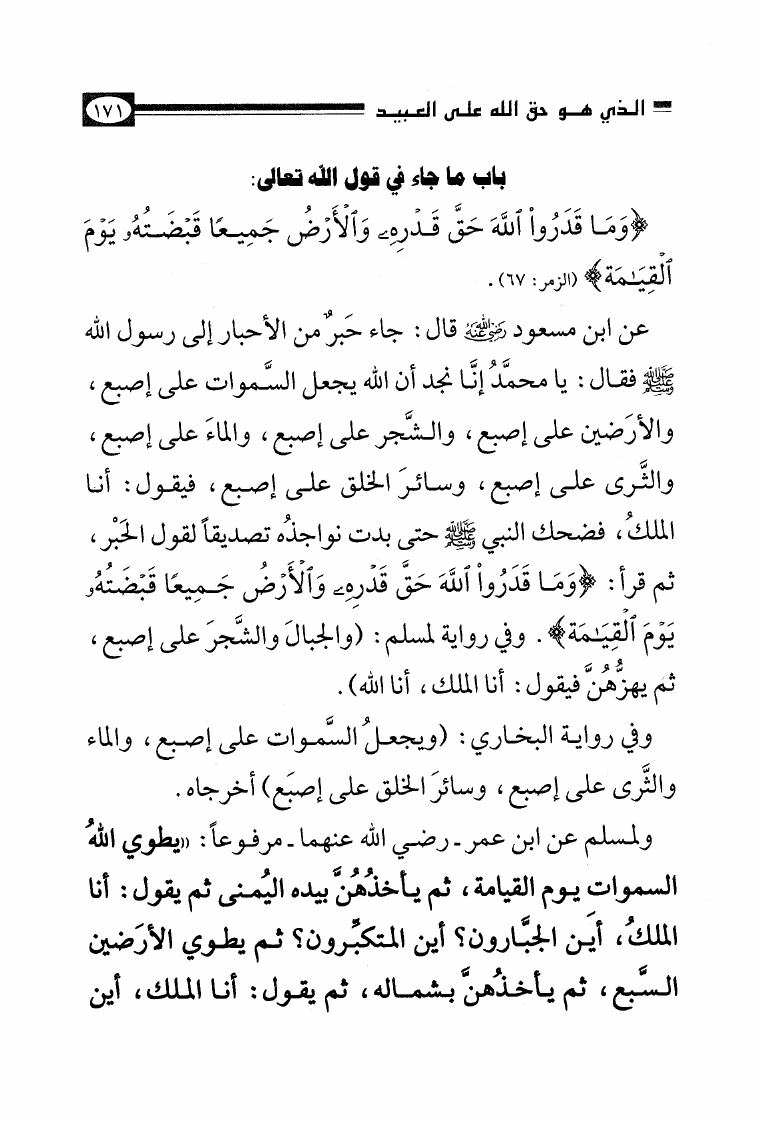 الذي هو حق الله على العبيد ١٧١
باب ما جاء في قول الله تعالى:
﴿وَمَا قَدَرُواْ ٱللَّهَ حَقَّ قَدۡرِهِۦ وَٱلۡأَرۡضُ جَمِيعًا قَبۡضَتُهُۥ يَوۡمَ
ٱلۡقِيَٰمَةِ﴾ (الزمر: ٦٧).
عن ابن مسعود رضي الله عنه قال: جاء حَبرٌ من الأحبار إلى رسول الله
ﷺ فقال: يا محمَّدُ إنَّا نجد أن الله يجعل السَّموات على إصبع،
والأرَضين على إصبع، والشَّجر على إصبع، والماءَ على إصبع،
والثَّرى على إصبع، وسائرَ الخلق على إصبع، فيقول: أنا
الملكُ، فضحك النبي ﷺ حتى بدت نواجذُه تصديقاً لقول الحَبْر،
ثم قرأ: ﴿وَمَا قَدَرُواْ ٱللَّهَ حَقَّ قَدۡرِهِۦ وَٱلۡأَرۡضُ جَمِيعًا قَبۡضَتُهُۥ
يَوۡمَ ٱلۡقِيَٰمَةِ﴾. وفي رواية لمسلم: (والجبالَ والشَّجرَ على إصبع،
ثم يهزُّهُنَّ فيقول: أنا الملك، أنا الله).
وفي رواية البخاري: (ويجعلُ السَّموات على إصبع، والماء
والثَّرى على إصبع، وسائرَ الخلق على إصبَع) أخرجاه.
ولمسلم عن ابن عمر - رضي الله عنهما - مرفوعاً: «يطوي اللهُ
السموات يوم القيامة، ثم يأخذُهُنَّ بيده اليُمنى ثم يقول: أنا
الملكُ، أين الجبَّارون؟ أين المتكبِّرون؟ ثم يطوي الأرَضين
السَّبع، ثم يأخذُهنَّ بشماله، ثم يقول: أنا الملك، أين